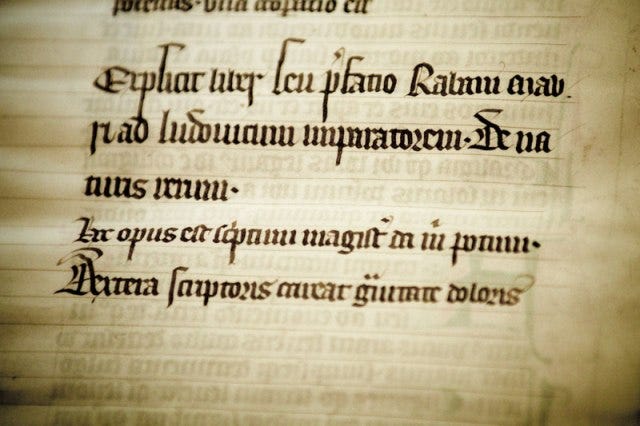 Explicit liber seu p̃fatio Rabani mau
ri ad ludouicum imparatorem. De na
turis rerum.
Hoc opus est sc̃ptum magist̃ da m̃ potum.
Dextera scriptoris careat g̃uitate doloris